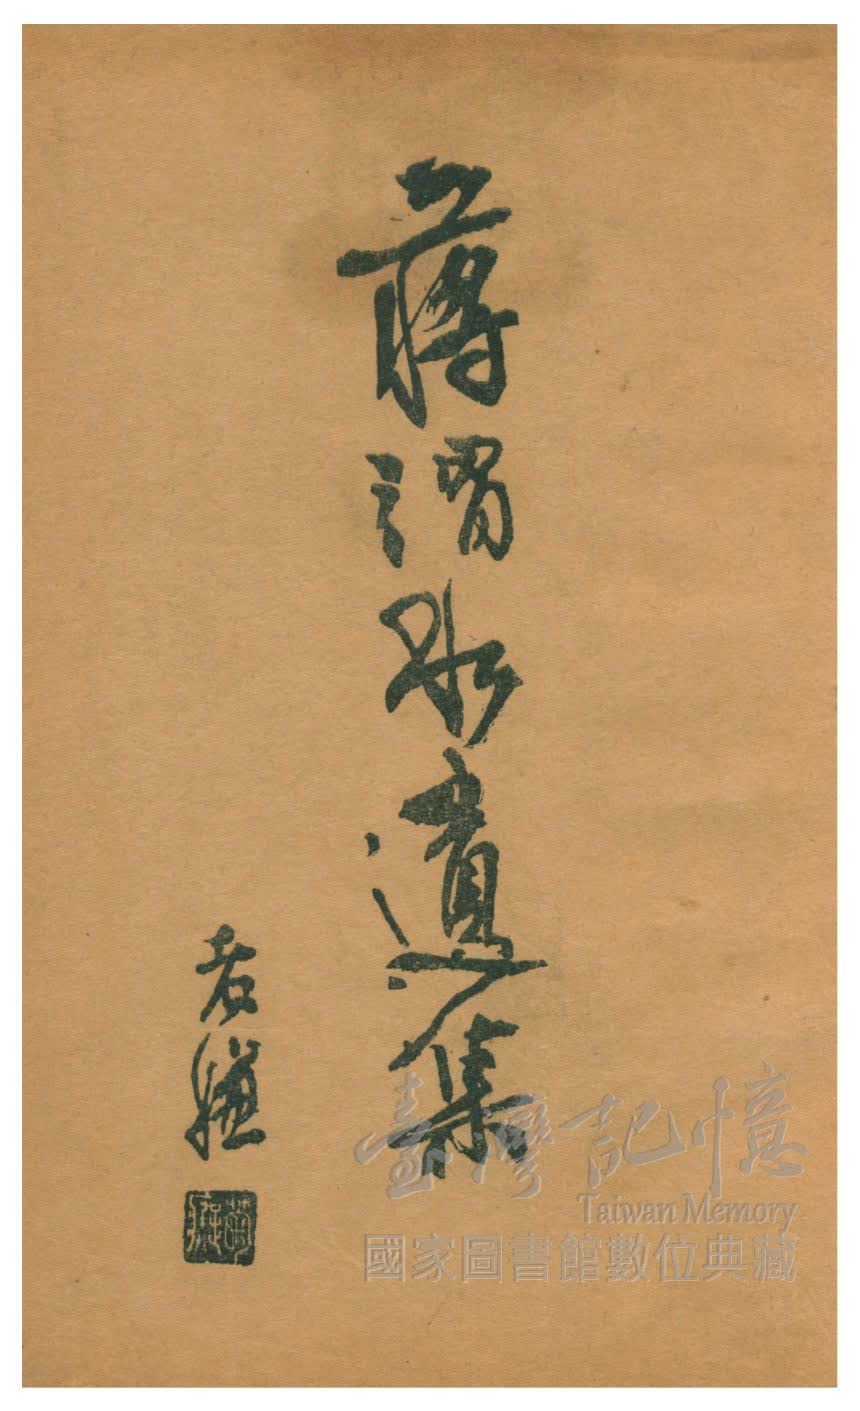 蔣渭水遺集
臺灣記憶
Taiwan Memory
國家圖書館數位典藏